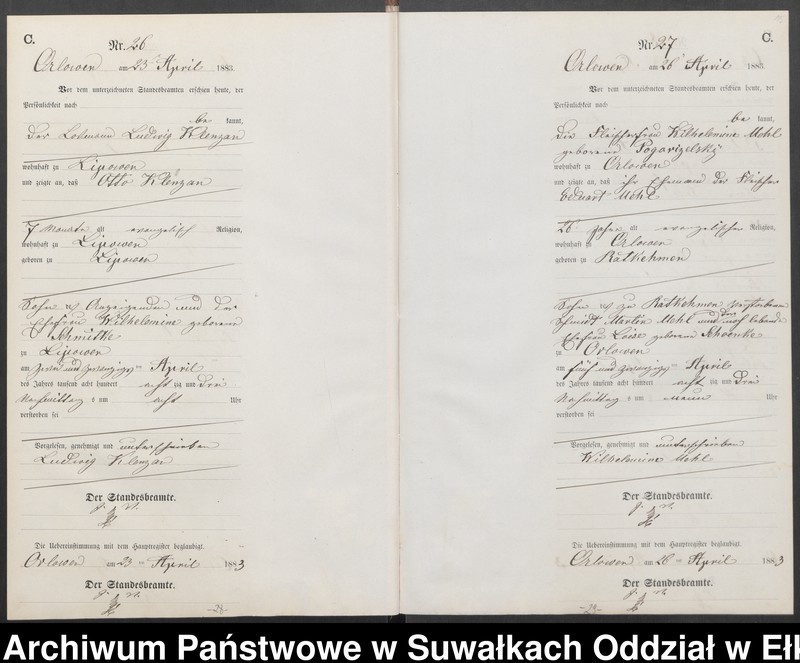 C.
Nr. 26
Orlowen am 23 April 1883.
Vor dem unterzeichneten Standesbeamten erschien heute, der
Persönlichkeit nach
be kannt,
der Losmann Ludwig Klenzan
wohnhaft zu Lipowen
und zeigte an, daß Otto Klenzan
7 Monate alt evangelisch Religion,
wohnhaft zu Lipowen
geboren zu Lipowen
Sohn des Anzeigenden und der
Ehefrau Wilhelmine geborene
Schmittke
zu Lipowen
am zwei und zwanzigs ten April
des Jahres tausend acht hundert acht zig und drei
Nachmittag s um acht Uhr
verstorben sei
Vorgelesen, genehmigt und unterschrieben
Ludwig Klenzan
Der Standesbeamte.
Die Uebereinstimmung mit dem Hauptregister beglaubigt.
Orlowen am 23 ten April 1883
Der Standesbeamte.
-28-
C.
Nr. 27
Orlowen am 26 April 1883.
Vor dem unterzeichneten Standesbeamten erschien heute, der
Persönlichkeit nach
be kannt,
die Fleischerfrau Wilhelmine Mehl
geborene Pogorizelsky
wohnhaft zu Orlowen
und zeigte an, daß ihr Ehemann der Fleischer
Eduart Mehl
26 Jahre alt evangelischer Religion,
wohnhaft zu Orlowen
geboren zu Ratkehmen
Sohn des zu Ratkehmen verstorbenen
Schmidt Martin Mehl und der noch lebenden
Ehefrau Loise geborene Schoenke
zu Orlowen
am fünf und zwanzigs ten April
des Jahres tausend acht hundert acht zig und drei
Nachmittag s um neun Uhr
verstorben sei
Vorgelesen, genehmigt und unterschrieben
Wilhelmine Mehl
Der Standesbeamte.
Die Uebereinstimmung mit dem Hauptregister beglaubigt.
Orlowen am 26 ten April 1883
Der Standesbeamte.
-29-
Archiwum Państwowe w Suwałkach Oddział w Ełk